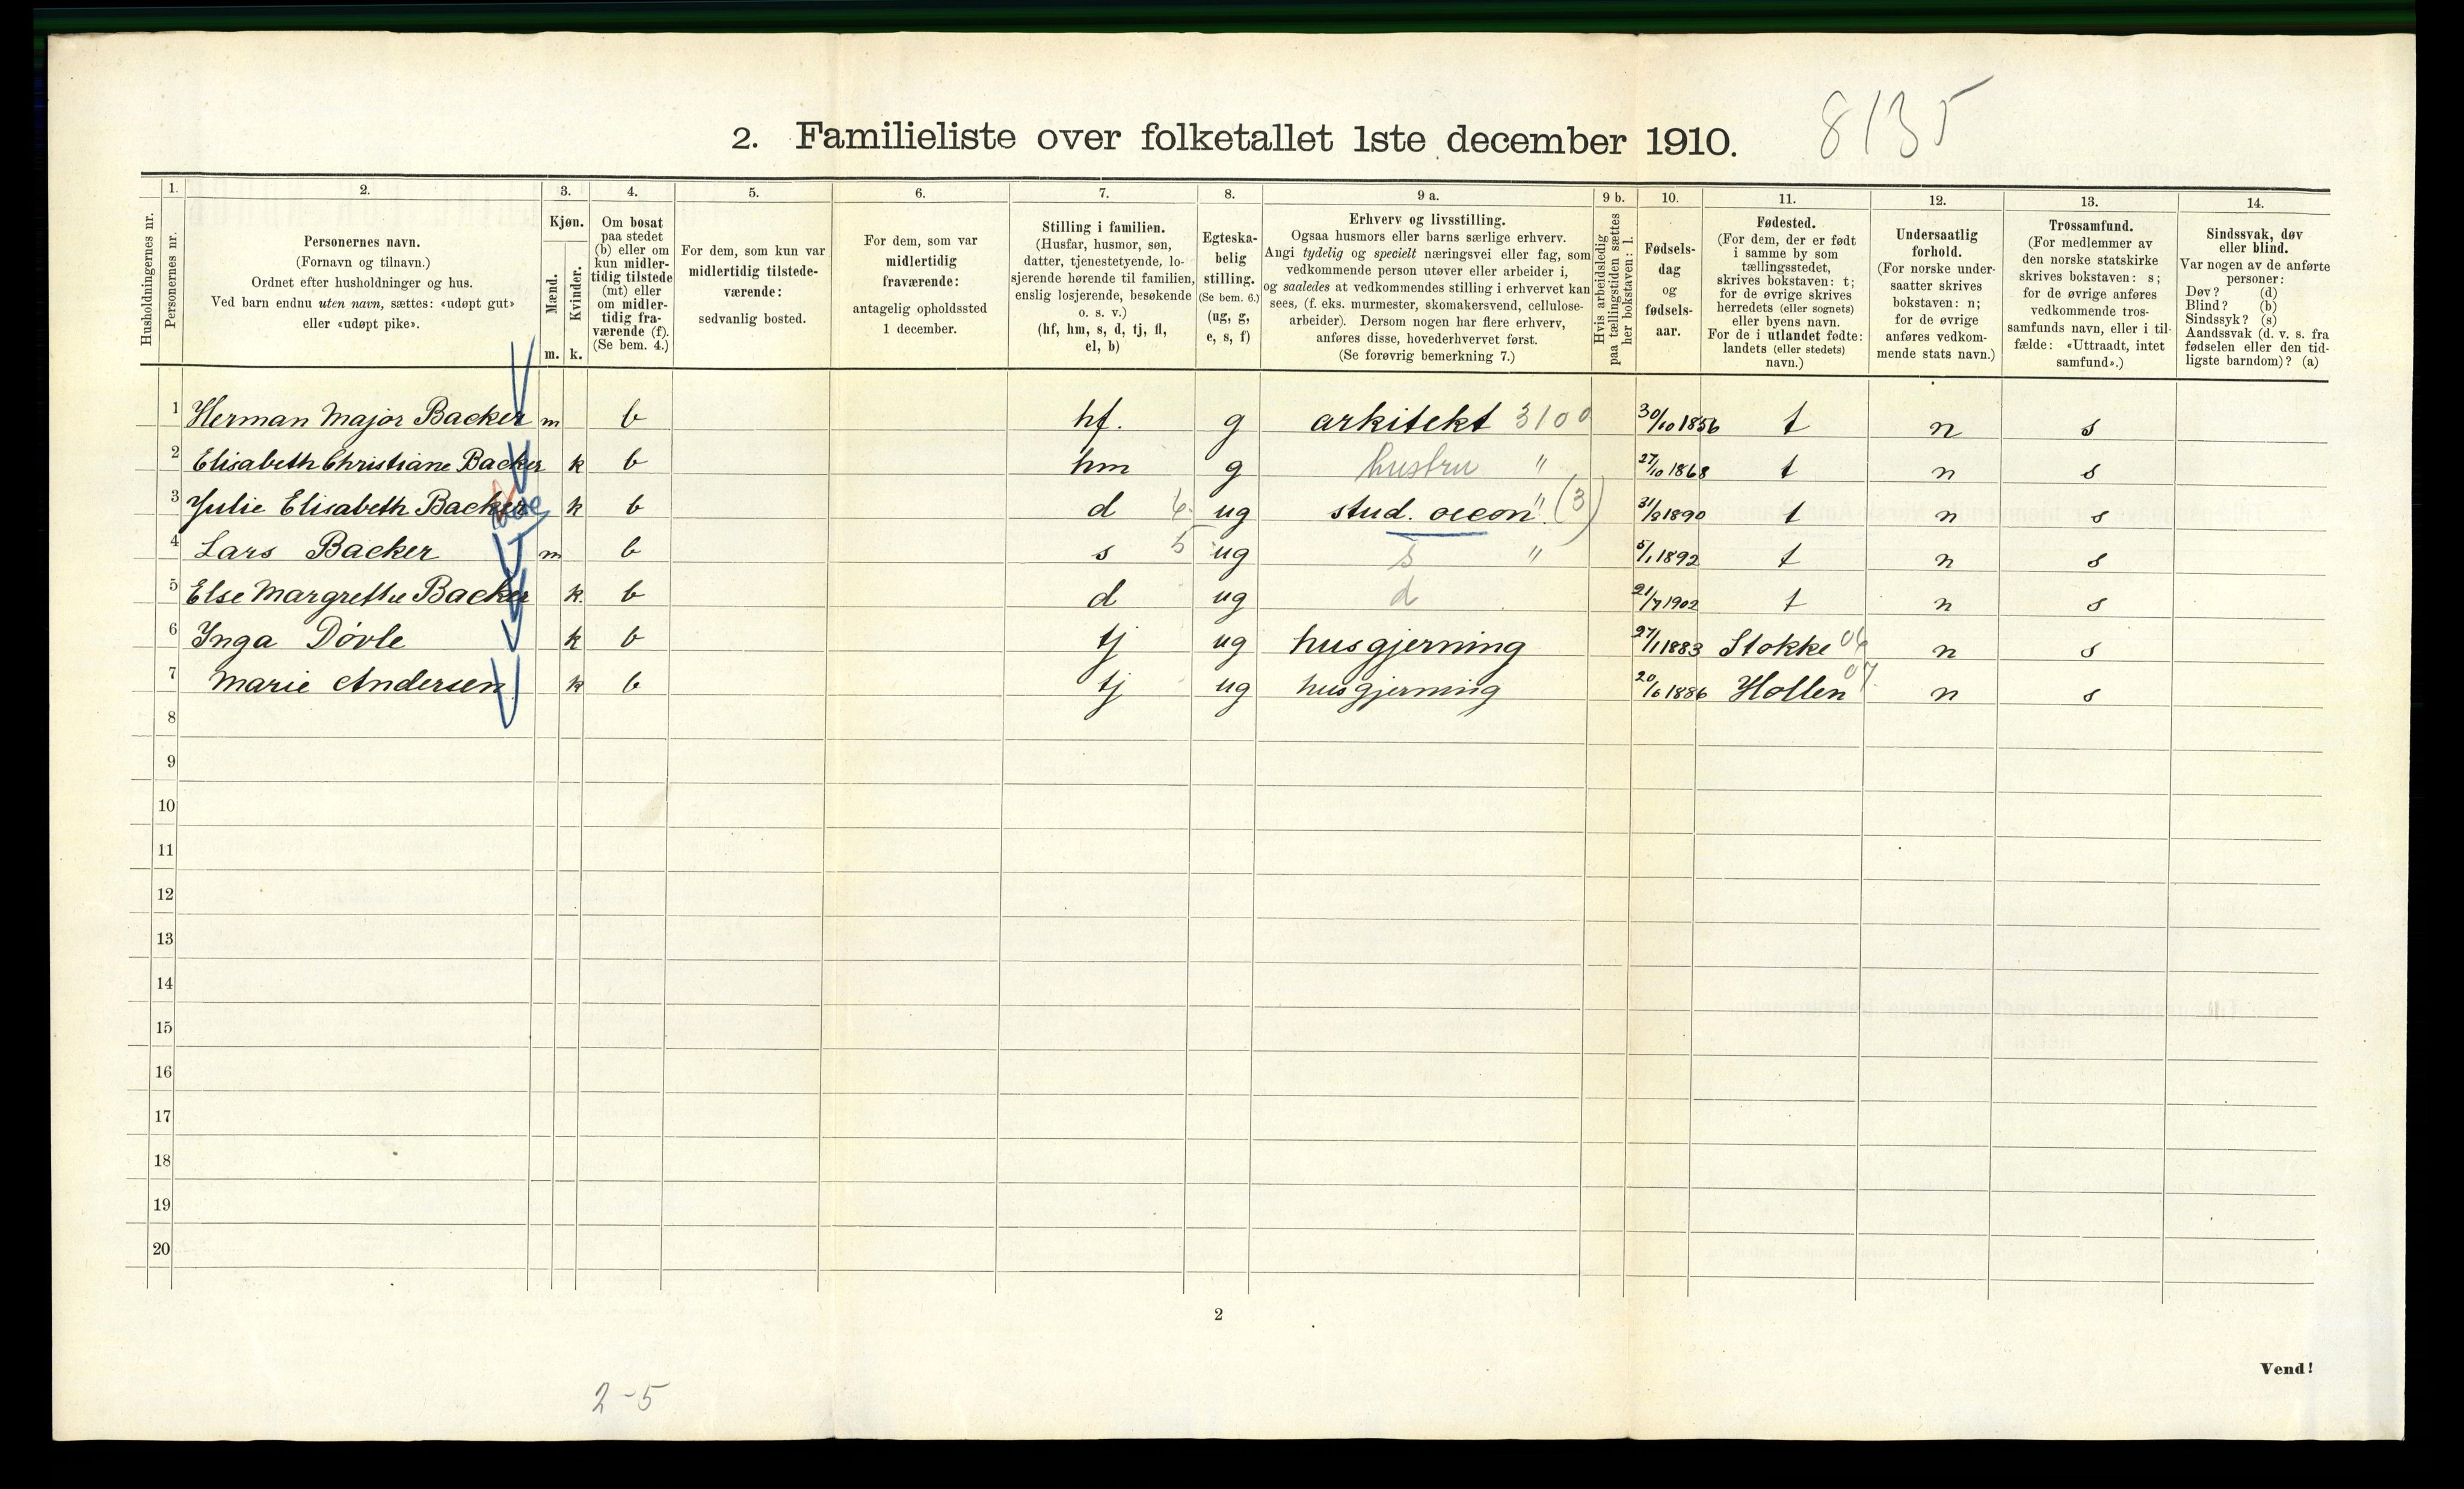 8135
2. Familieliste over folketallet 1ste december 1910.
Husholdningernes nr.
1. Personernes nr.
2. Personernes navn. (Fornavn og tilnavn.) Ordnet efter husholdninger og hus. Ved barn endnu uten navn, sættes: «udøpt gut» eller «udøpt pike».
3. Kjøn. Mænd. m. Kvinder. k.
4. Om bosat paa stedet (b) eller om kun midlertidig tilstede (mt) eller om midlertidig fraværende (f). (Se bem. 4.)
5. For dem, som kun var midlertidig tilstedeværende: sedvanlig bosted.
6. For dem, som var midlertidig fraværende: antagelig opholdssted 1 december.
7. Stilling i familien. (Husfar, husmor, søn, datter, tjenestetyende, losjerende hørende til familien, enslig losjerende, besøkende o. s. v.) (hf, hm, s, d, tj, fl, el, b)
8. Egteskabelig stilling. (Se bem. 6.) (ug, g, e, s, f)
9 a. Erhverv og livsstilling. Ogsaa husmors eller barns særlige erhverv. Angi tydelig og specielt næringsvei eller fag, som vedkommende person utøver eller arbeider i, og saaledes at vedkommendes stilling i erhvervet kan sees, (f. eks. murmester, skomakersvend, cellulosearbeider). Dersom nogen har flere erhverv, anføres disse, hovederhvervet først. (Se forøvrig bemerkning 7.)
9 b. Hvis arbeidsledig paa tællingstiden sættes her bokstaven: l.
10. Fødselsdag og fødselsaar.
11. Fødested. (For dem, der er født i samme by som tællingsstedet, skrives bokstaven: t; for de øvrige skrives herredets (eller sognets) eller byens navn. For de i utlandet fødte: landets (eller stedets) navn.)
12. Undersaatlig forhold. (For norske undersaatter skrives bokstaven: n; for de øvrige anføres vedkommende stats navn.)
13. Trossamfund. (For medlemmer av den norske statskirke skrives bokstaven: s; for de øvrige anføres vedkommende trossamfunds navn, eller i tilfælde: «Uttraadt, intet samfund».)
14. Sindssvak, døv eller blind. Var nogen av de anførte personer: Døv? (d) Blind? (b) Sindssyk? (s) Aandssvak (d. v. s. fra fødselen eller den tidligste barndom)? (a)
1 Herman Major Backer m b hf. g arkitekt 3100 30/10 1856 t n s
2 Elisabeth Christiane Backer k b hm g hustru " 27/10 1868 t n s
3 Julie Elisabeth Backer k b d 6 ug stud. oecon. " (3) 31/8 1890 t n s
4 Lars Backer m b s 5 ug s " 5/1 1892 t n s
5 Else Margrethe Backer k. b d ug d 21/7 1902 t n s
6 Inga Døvle k b tj ug husgjerning 27/1 1883 Stokke 06 n s
7 Marie Andersen k b tj ug husgjerning 20/6 1886 Hollen 07. n s
8
9
10
11
12
13
14
15
16
17
18
19
20
2
Vend!
2-5